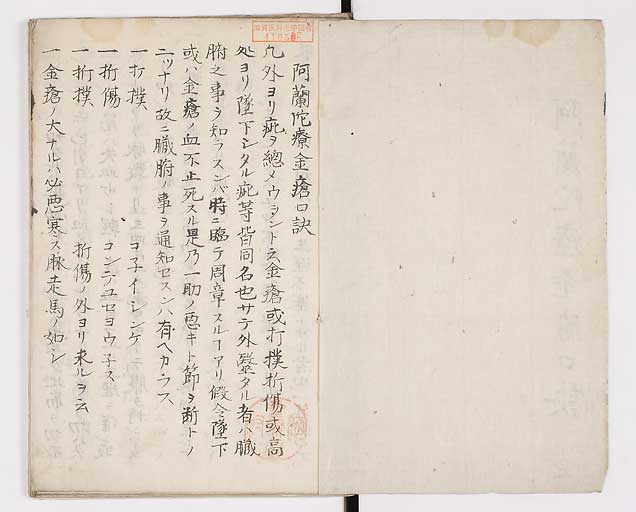 阿蘭陀療金瘡口訣
凡外ヨリ疵ヲ總メウヨント云金瘡或打撲折傷或高
処ヨリ墜下シタル疵等皆同名也サテ外醫タル者ハ臓
腑之事ヲ知ラスンバ時ニ臨テ周章スルヿアリ假令墜下
或ハ金瘡ノ血不止死スル是乃一助ノ悪キト節ヲ断トノ
二ツナリ故ニ臓腑ノ事ヲ通知セスンハ有ヘカラス
一打撲 コ子イシンゲ
一折傷 コンテユセヨウ子ス
一折撲 折傷ノ外ヨリ来ルヲ云
一金瘡ノ大ナルハ必悪寒ス脉走馬ノ如シ